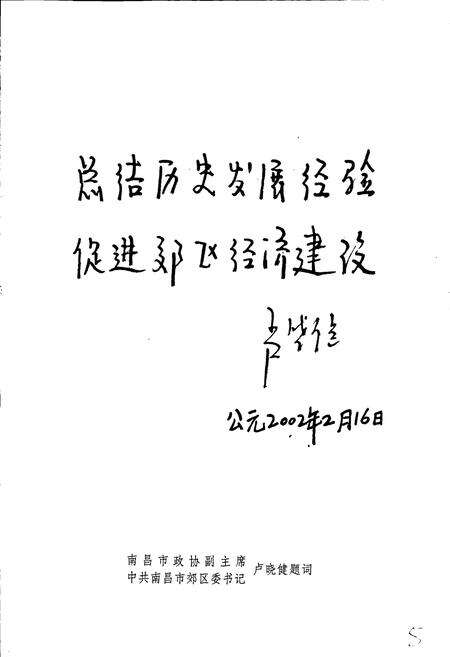 总结历史发展经验
促进郊区经济建设
卢晓健
公元2002年2月16日
南昌市政协副主席
中共南昌市郊区委书记 卢晓健题词
5